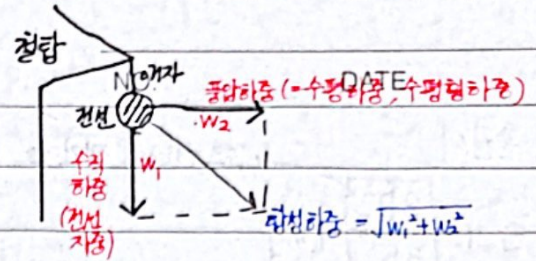 철탑
NO. 애자
DATE
풍압하중 (=수평하중, 수평횡하중)
전선
W₂
수직
하중
(전선
자중)
W₁
합성하중 = √W₁²+W₂²